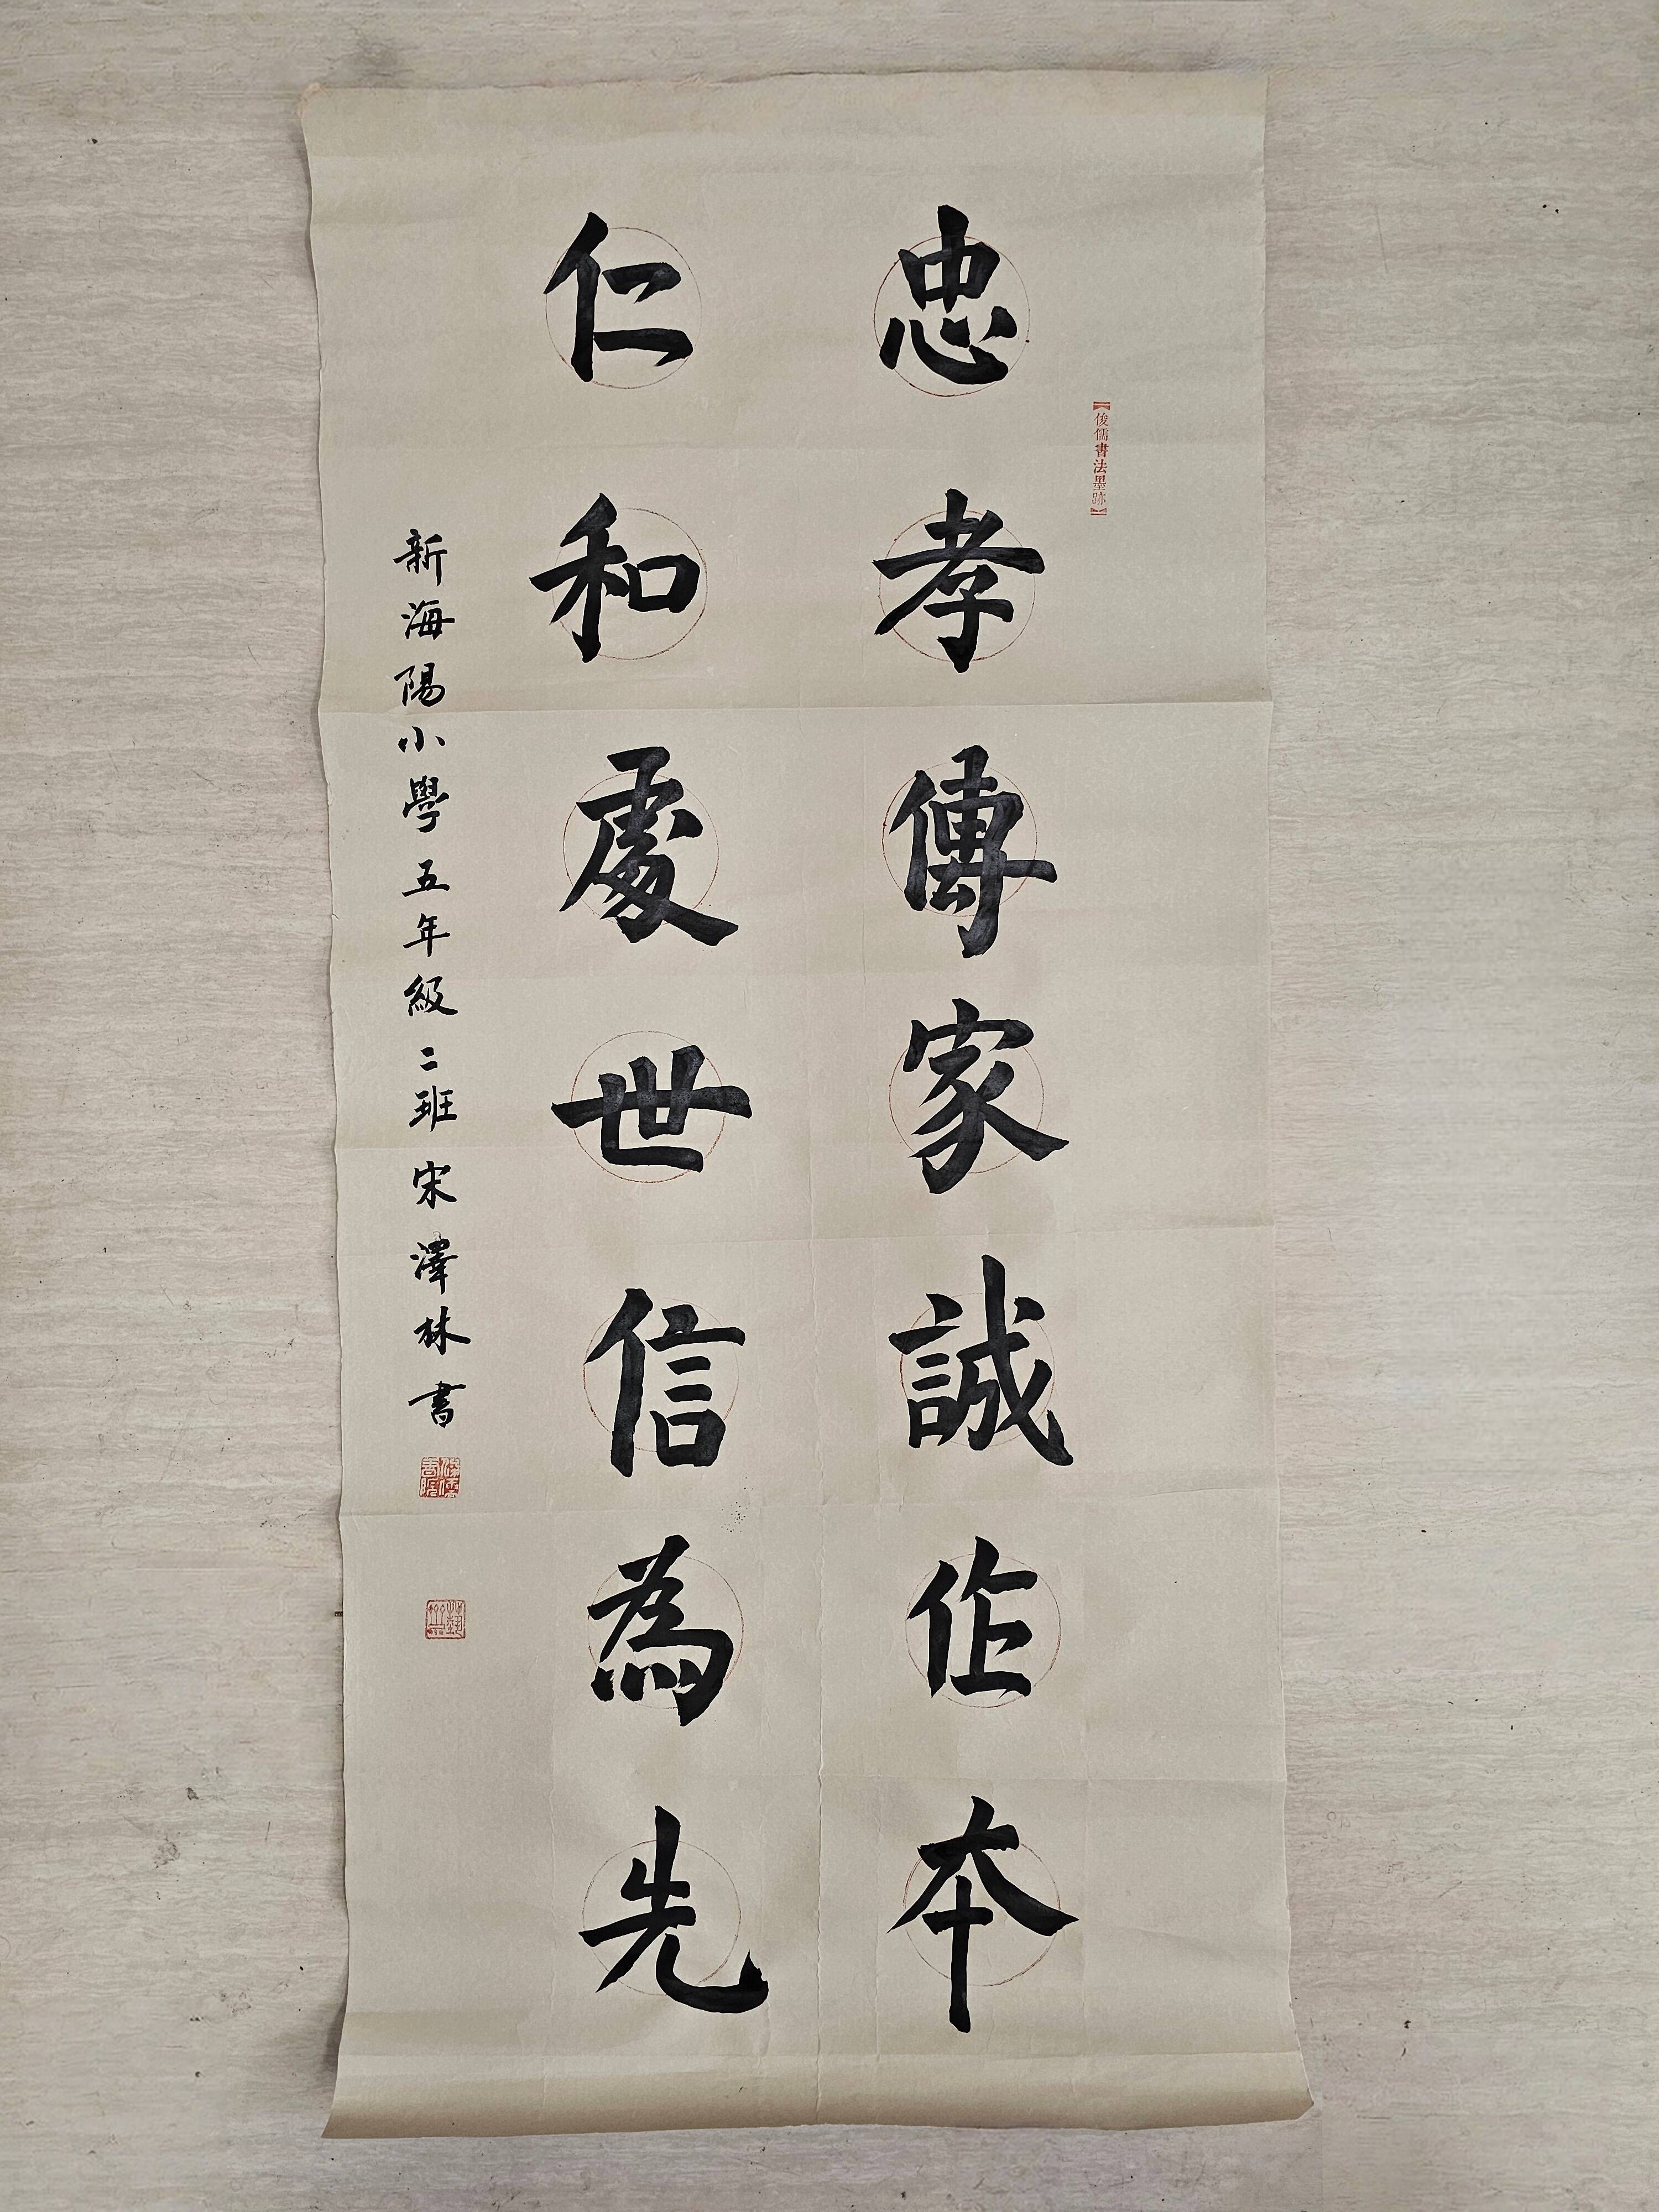 【俊儒書法墨跡】
忠孝傳家誠作本
仁和處世信為先
新海陽小學五年級二班宋澤林書